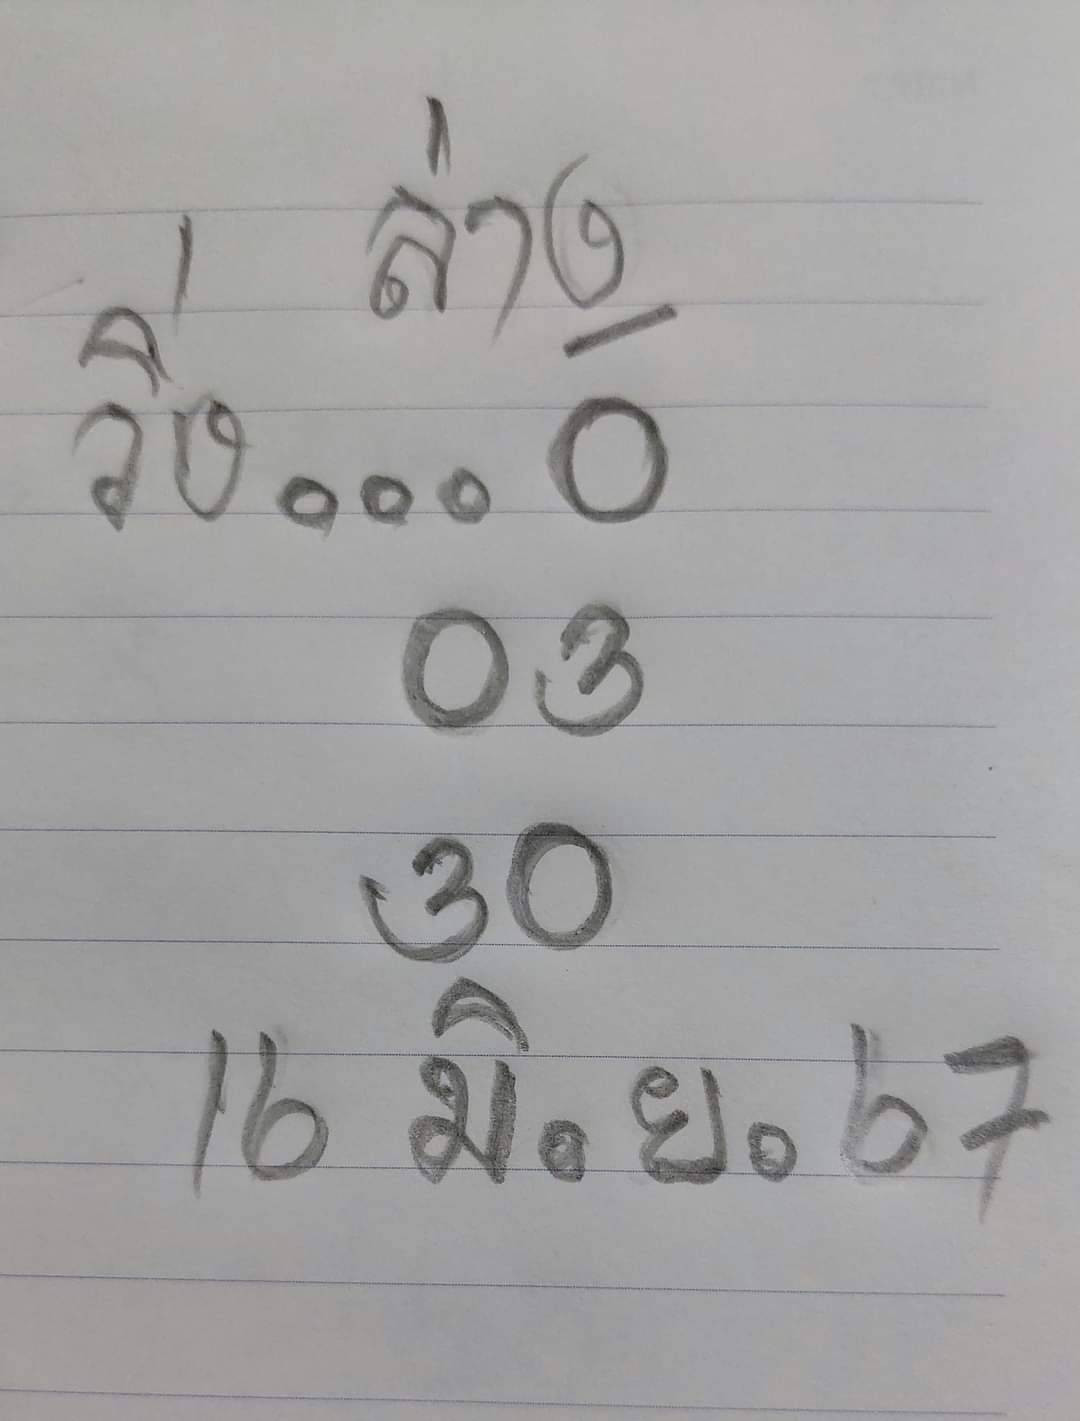 ล่าง
วิ่ง...0
03
30
16 มิ.ย.67